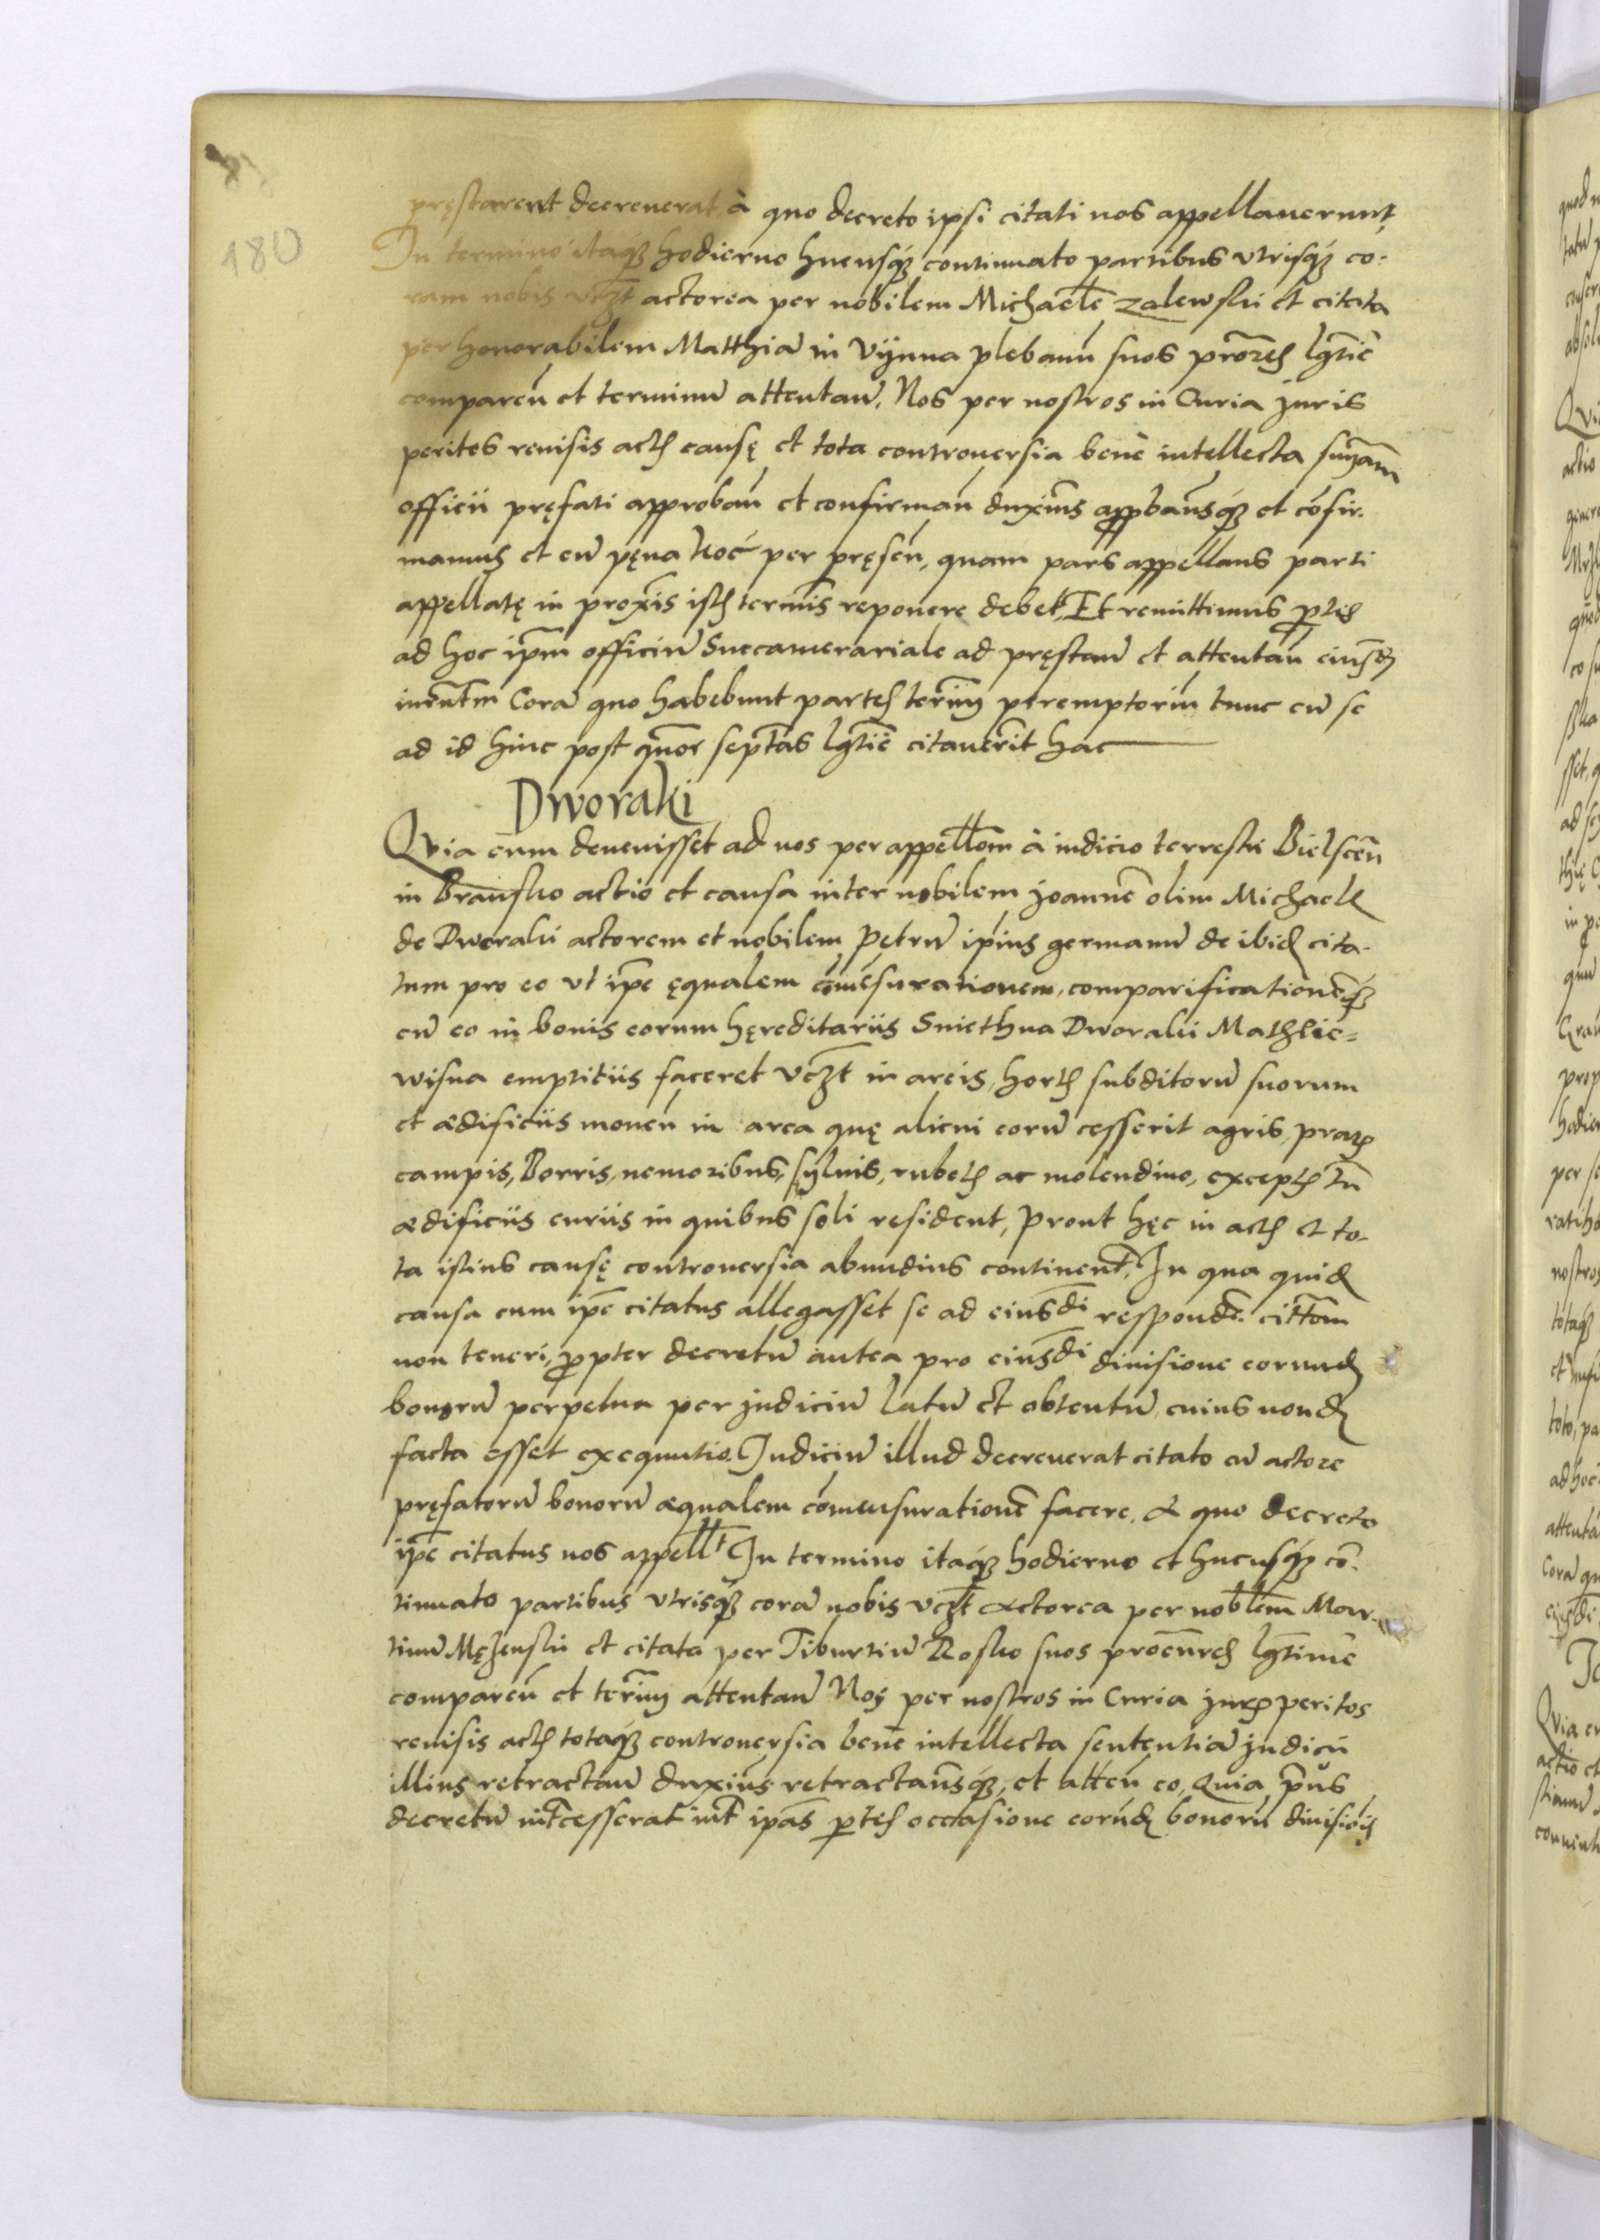 180
pręstarent decreverat, à quo decreto ipsi citati nos appellaverunt,
In termino itaq[ue] hodierno hucusq[ue] continuato partibus utrisq[ue] co-
ram nobis vczt actorea per nobilem Michaele̅ Zalewski et citata
per honorabilem Matthia̅ in Vijnna plebanu̅ suos pro̅res lgti̅e
compareu̅ et terminu̅ attentau̅. Nos per nostros in Curia juris
peritos revisis actis causę et tota controversia bene intellecta
officii pręfati approbau̅ et confirmau̅ duxim̅s appbam̅usq[ue] et co̅fir-
mamus et cu̅ pęna per pręsen̅, quam pars appellans parti
appellatę in prox̅is istis termi̅s reponere debet, Et remittimus p̅tes
ad hoc ip̅m officiu̅ Succamerariale ad pręstau̅ et attentau̅
Cora̅ quo habebunt partes ter̅m peremptoriu̅ tunc cu̅ se
ad id hinc post qu̅or sept̅as lgti̅e citaveri̅t hac
Dworaki
Quia cum devenisset ad nos per appell̅om à iudicio terrestri Bielscen̅
in Bransko actio et causa inter nobilem Joanne̅ olim Michaelis
de Dworaki actorem et nobilem Petru̅ ip̅ius germanu̅ de ibid̅ cita-
tum pro eo ut ip̅e ęqualem co̅me̅surationem, comparificatione̅q[ue]
cu̅ eo in bonis eorum hęreditariis Sniethna Dworaki Mathzie=
wisna emptitiis faceret vczt in areis, hortis subditoru̅ suorum
et ædificiis moneu̅ in area quę alicui eoru̅ cesserit agris, pratis
campis, Borris, nemoribus, sylvis, rubetis ac molendino, exceptis tn̅
ædificiis curiis in quibus soli resident, Prout hęc in actis et to-
ta istius causę controversia abundius continent̅, In qua quid̅
causa cum ip̅e citatus allegasset se ad eiusdi̅ respond̅e citt̅om
non teneri, p̅pter decretu̅ antea pro eiusdi̅ divisione eorund̅
bonoru̅ perpetua per judiciu̅ latu̅ et obtentu̅, cuius nond̅
facta esset exequutio. Judiciu̅ illud decreverat citato cu̅ actore
pręfatoru̅ bonoru̅ æqualem co̅mensuratione̅ facere. A quo decreto
ip̅e citatus nos appell̅t In termino itaq[ue] hodierno et hucusq[ue] co̅-
tinuato partibus utrisq[ue] cora̅ nobis vczt actorea per nobl̅em Mar-
tinu̅ Męzenski et citata per Tiburtiu̅ Rosko suos procur̅es lgti̅me
compareu̅ et ter̅m attentau̅ Nos per nostros in Curia juris peritos
revisis actis totaq[ue] controversia bene intellecta sententia̅ judicii
illius retractau̅ duxim̅s retractam̅usq[ue], et atteu̅ eo, Quia pri̅us
decretu̅ int̅cesserat int̅ ipa̅s p̅tes occasione eorund̅ bonoru̅ divisio̅is